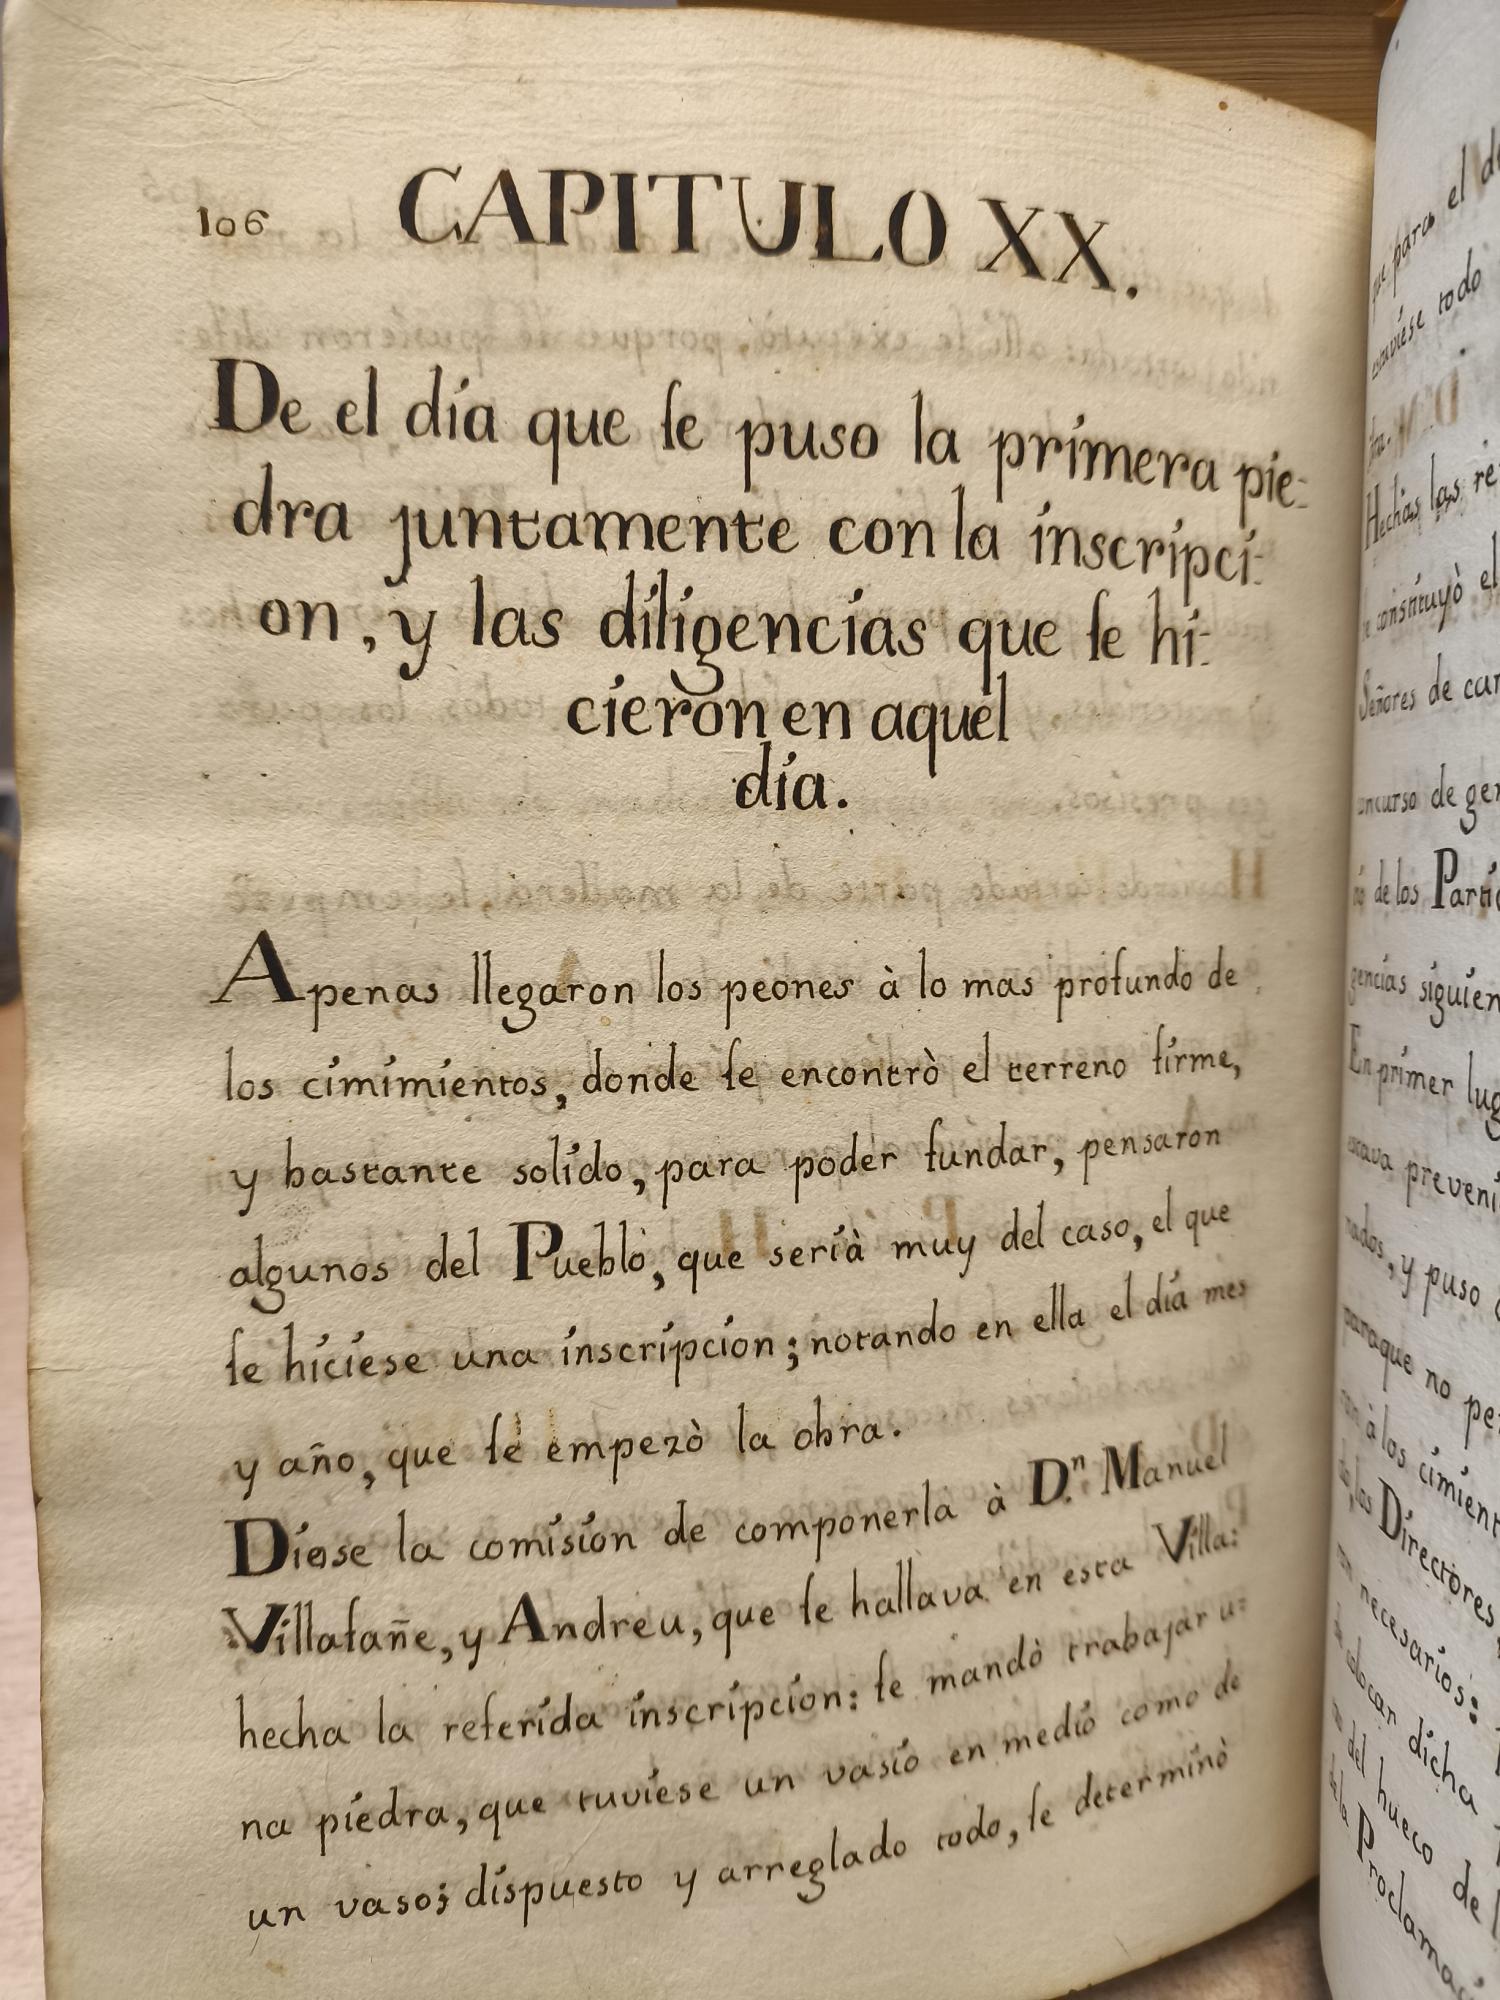 106
CAPITULO XX.
De el día que se puso la primera pie-
dra juntamente con la inscripci-
on, y las diligencias que se hi-
cieron en aquel
día.
Apenas llegaron los peones à lo mas profundo de
los cimimientos, donde se encontrò el terreno firme,
y bastante solído, para poder fundar, pensaron
algunos del Pueblo, que serià muy del caso, el que
se hiciese una inscripcion; notando en ella el día mes
y año, que se empezò la obra.
Diose la comision de componerla à D.n Manuel
Villafañe, y Andreu, que se hallava en esta Villa:
hecha la referida inscripcion: se mandò trabajar u-
na piedra, que tuviese un vasio en medio como de
un vaso; dispuesto y arreglado todo, se determinò
que para el
estuviese todo
Hechas las
se constituyò el
Señores de
concurso de
de los
siguien
En primer
estava
y puso
paraque no
à los
los Directores
necesarios:
colocar dicha
del hueco de